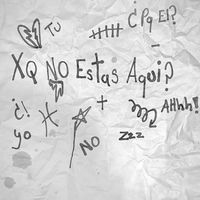 TU
¿Pq El?
XQ NO Estas Aqui?
¿!
yo
NO
AHhh!
Zzz